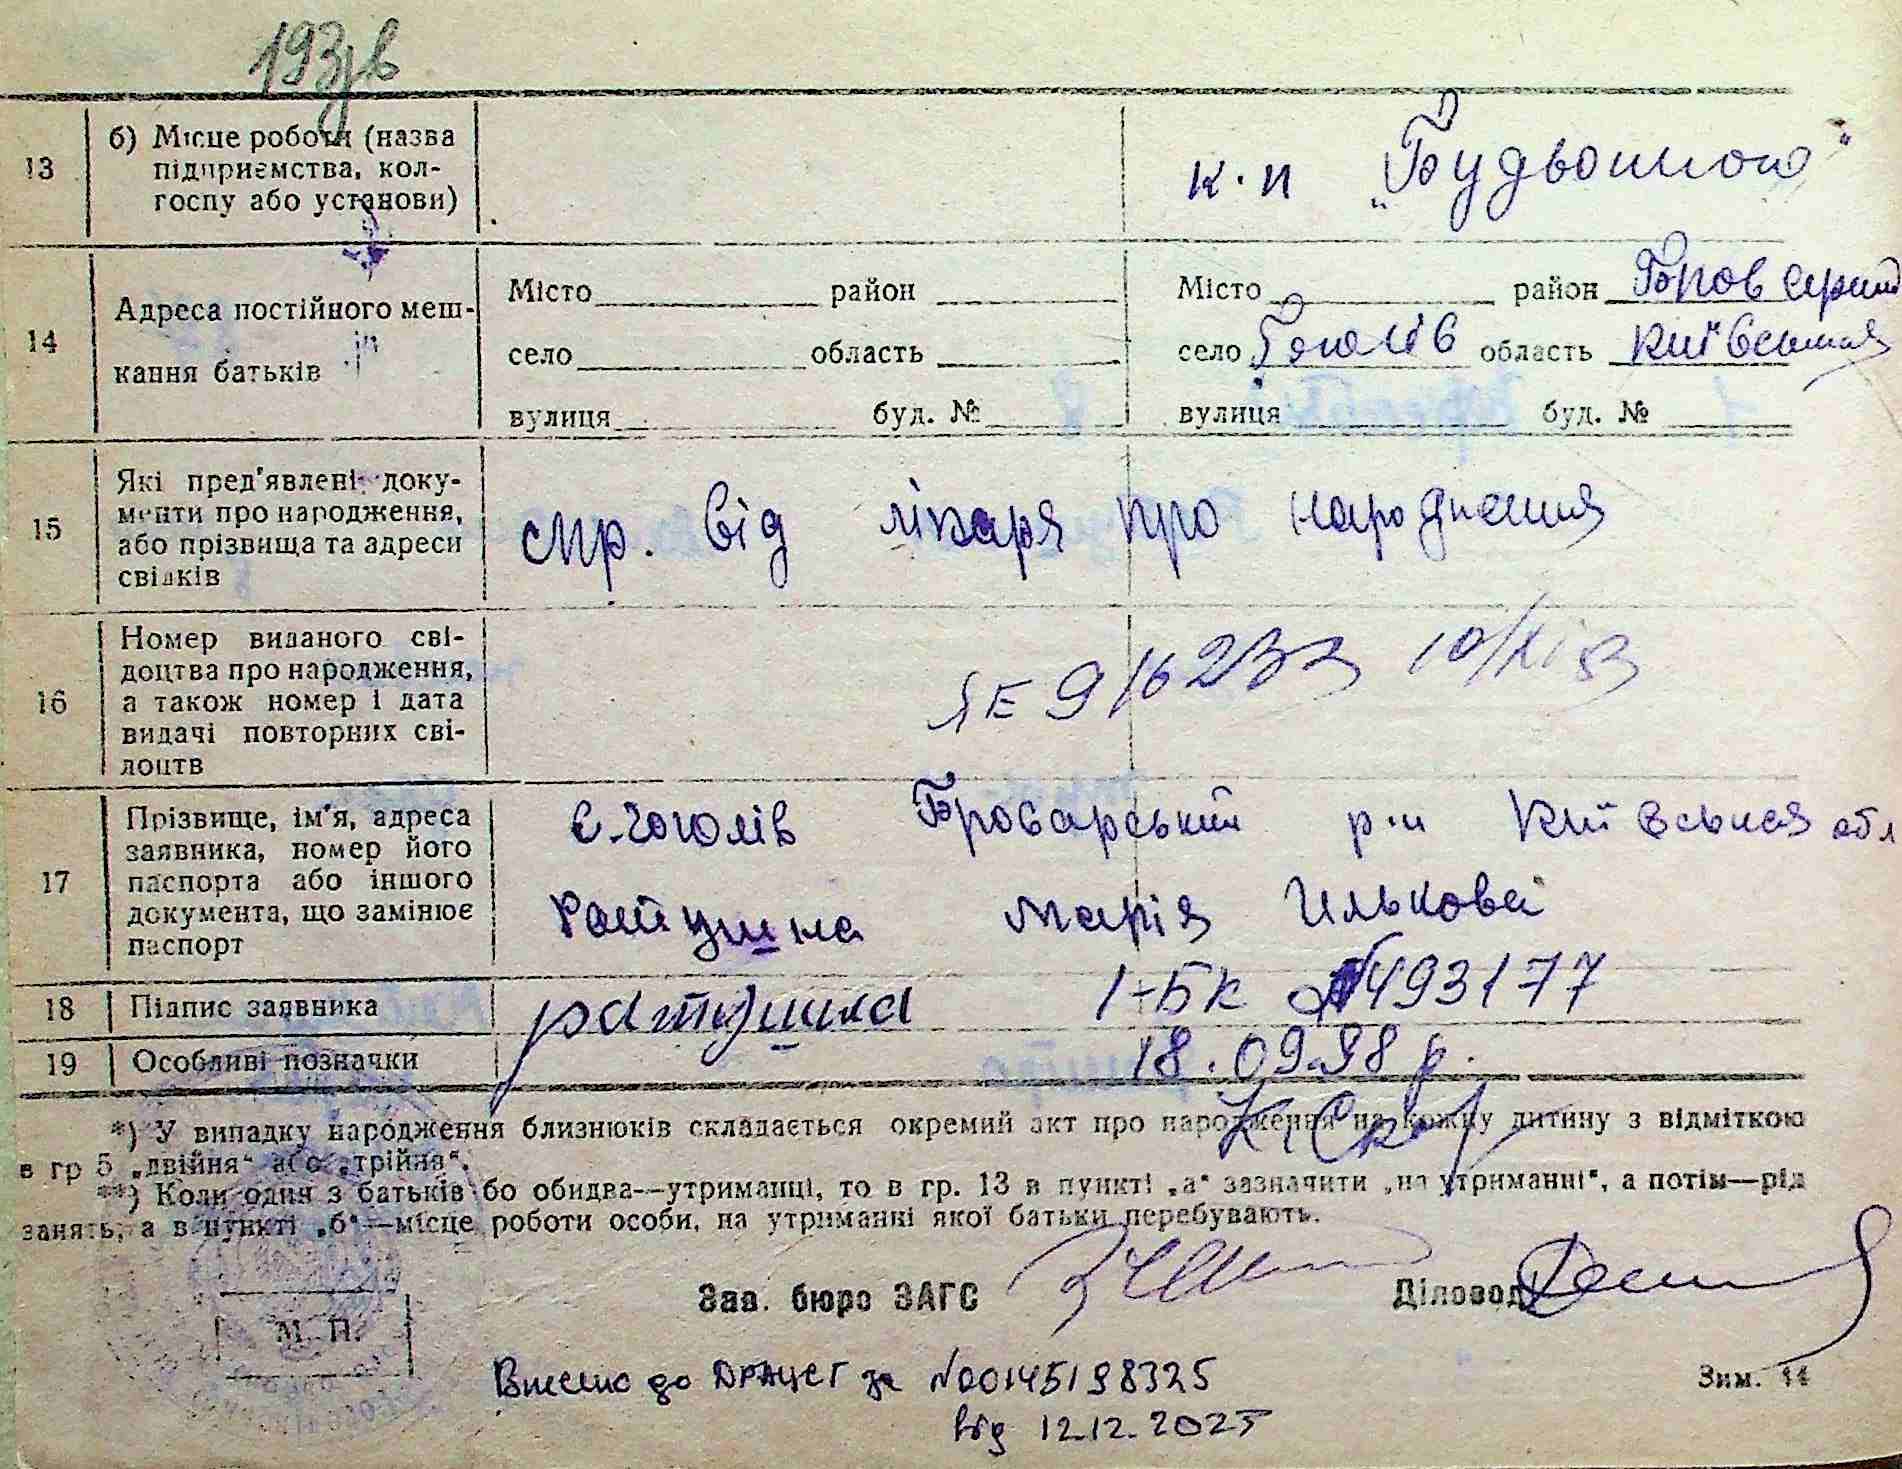 193зв
13
б) Місце роботи (назва
підприємства, кол-
госпу або установи)
к.п „Будьонного"
14
Адреса постійного меш-
кання батьків
Місто район
село область
вулиця буд. №
Місто район
село Гоголів область Київська
вулиця буд. №
15
Які пред'явлені доку-
менти про народження,
або прізвища та адреси
свідків
спр. від лікаря про народження
16
Номер виданого сві-
доцтва про народження,
а також номер і дата
видачі повторних сві-
доцтв
ЯЕ 916233 10/XI 53
17
Прізвище, ім'я, адреса
заявника, номер його
паспорта або іншого
документа, що замінює
паспорт
с. Гоголів Броварський р-н Київська обл
Ратушна Марія Ильковв
18
Підпис заявника
ратушна
І-БК №493177
19
Особливі позначки
18.09.98 р.
*) У випадку народження близнюків складається окремий акт про народження на кожну дитину з відміткою
в гр 5 „двійня" або „трійня".
**) Коли один з батьків бо обидва—утриманці, то в гр. 13 в пункті „а" зазначити „на утриманні", а потім—рід
занять, а в пункті „б"—місце роботи особи, на утриманні якої батьки перебувають.
Зав. бюро ЗАГС
Діловод
М. П.
Внесено до ДРАЦСГ за №00145198325
Зим. 14
від 12.12.2025